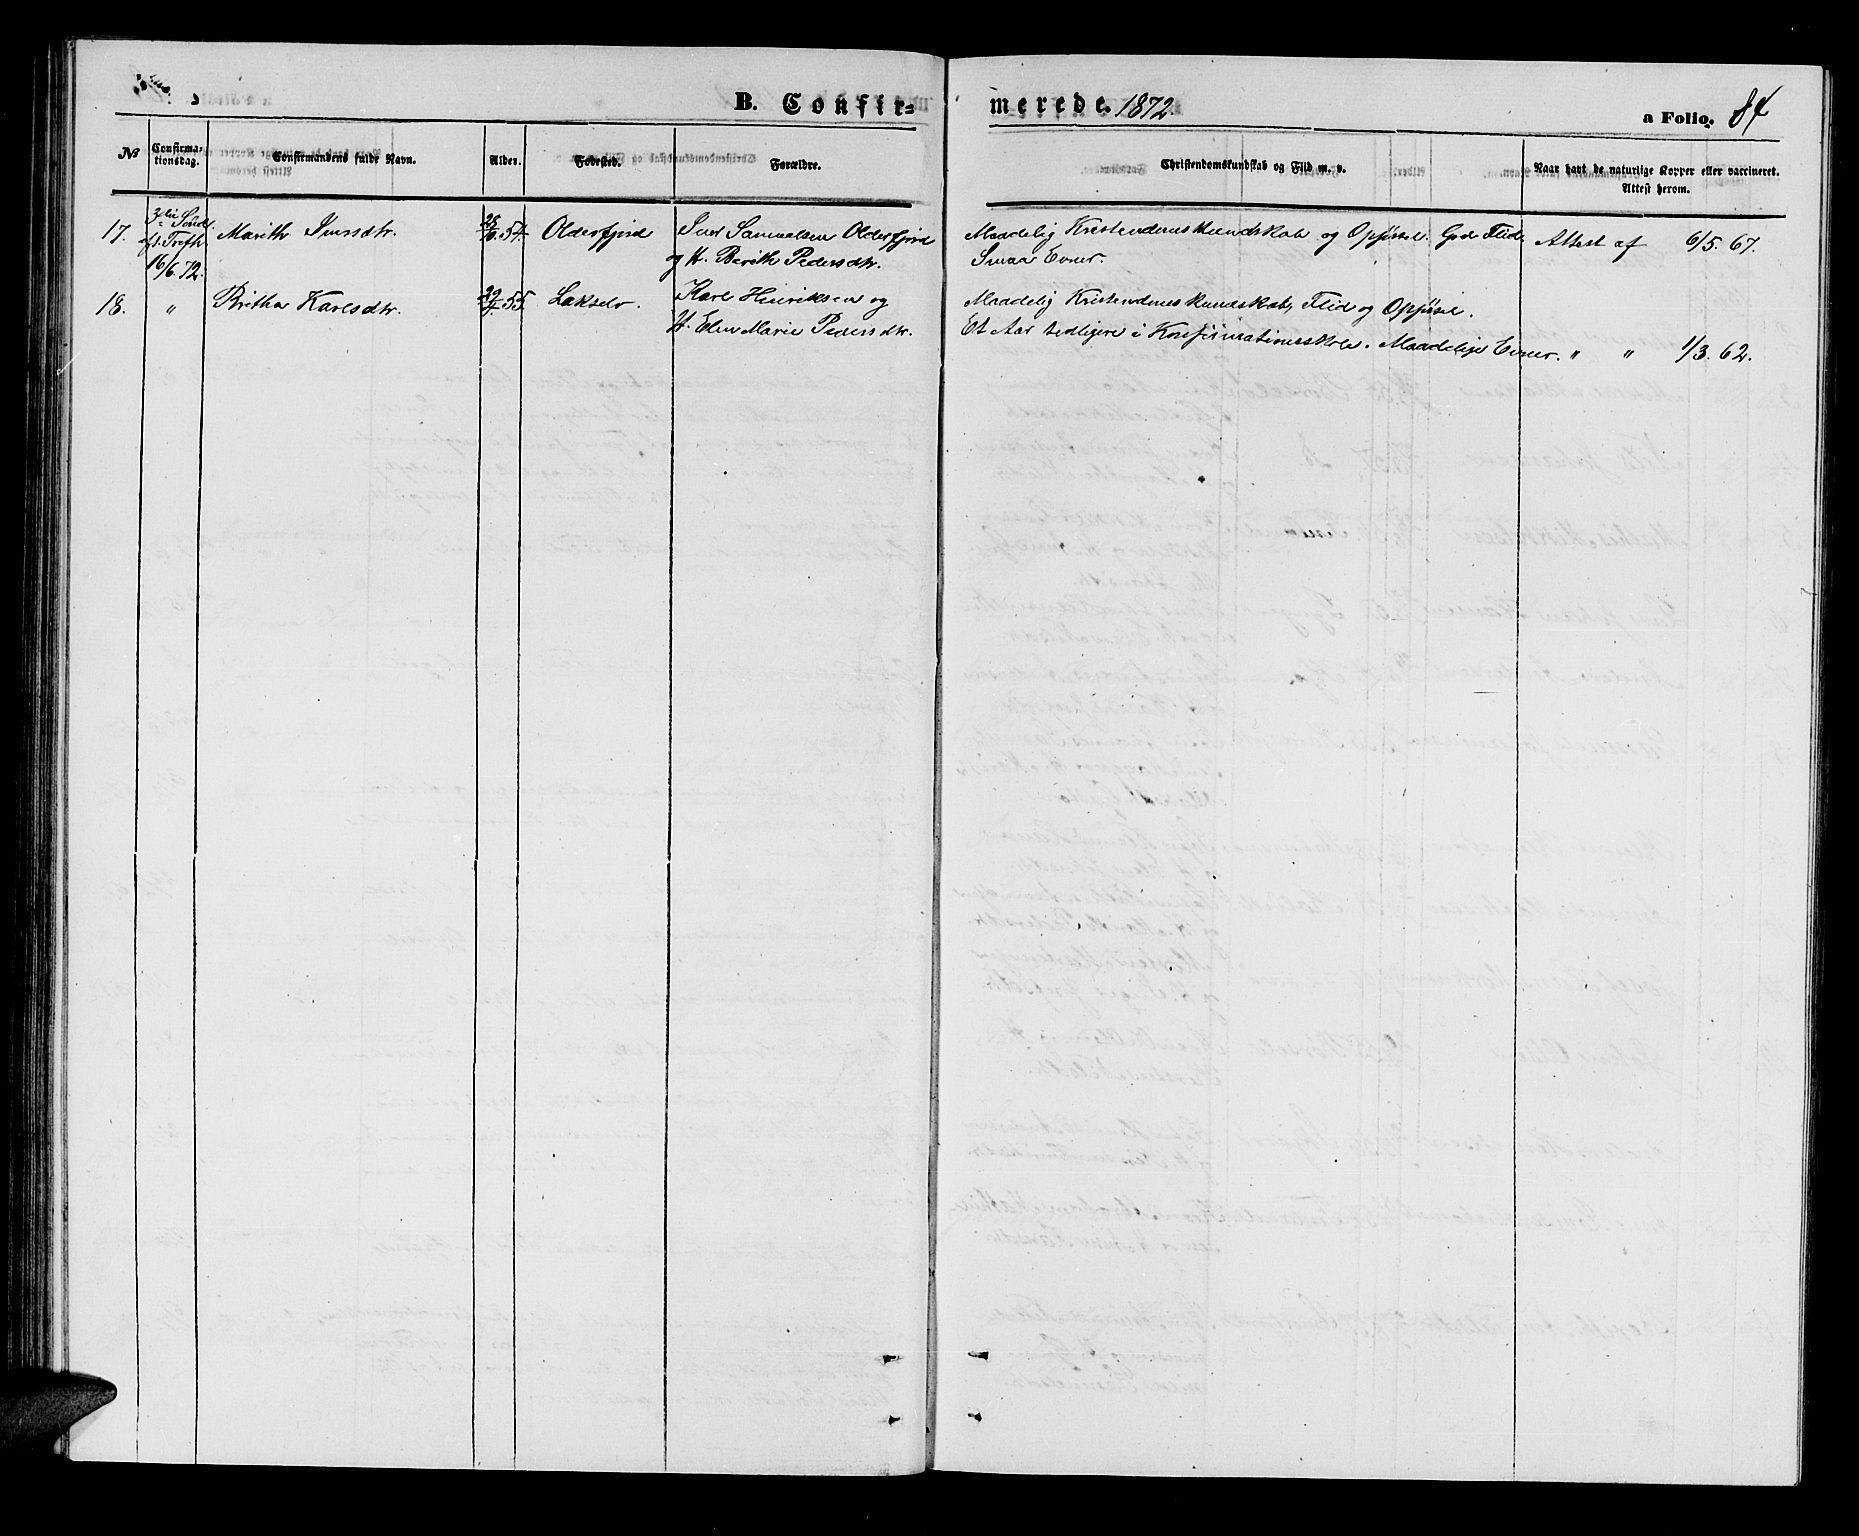 B. Confir=
merede. 1872.
a Folio. 84
No
Confirma-
tionsdag.
Confirmandens fulde Navn.
Alder.
Fødested.
Forældre.
Christendomskundskab og Flid m. v.
Naar havt de naturlige Kopper eller vaccineret.
Attest herom.
17. 3die Sønd. Marith 54. Olderfjord Samuelsen Olderfjord Maadelig Kristendomskundskab og Opførsel. God Flid. Attest af 6/5. 67.
eft. Trefh. og H. Berith Pedersdtr. Smaa Evner.
16/6.72.
18. " Britha Karlsdtr. 55. Lakselv. Karl Henriksen og Maadelig Kristendomskundskab, Flid og Opførsel.
H. Elen Marie Pedersdtr. Et Aar tidligere i Konfirmationsskole. Maadelige Evner. " " 1/3. 62.